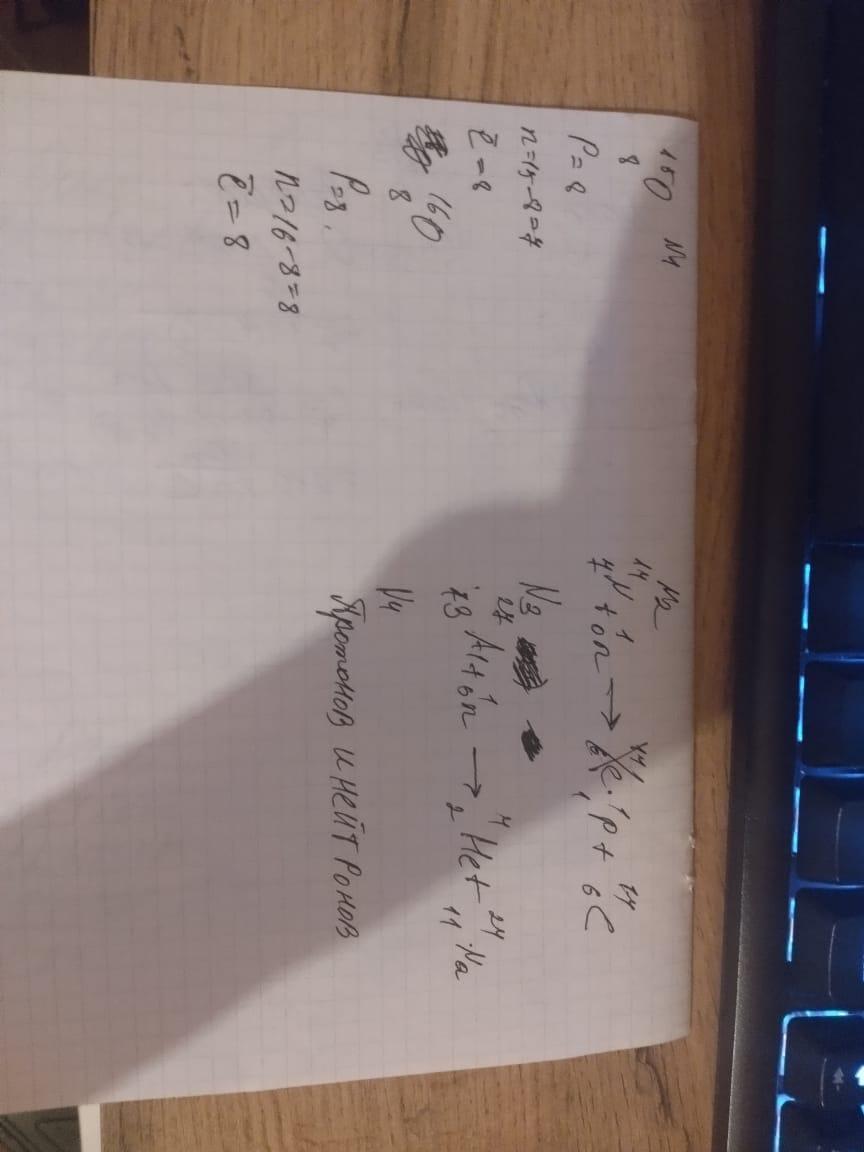 N1
15
8 O
P = 8
n = 15 - 8 = 7
ē = 8
16
8 O
P = 8.
n = 16 - 8 = 8
ē = 8
N2
14 1 14 1 14
7 N + 0 n → 6 C · 1 P + 6 C
N3
27 1 4 24
13 Al + 0 n → 2 He + 11 Na
N4
Протонов и нейтронов